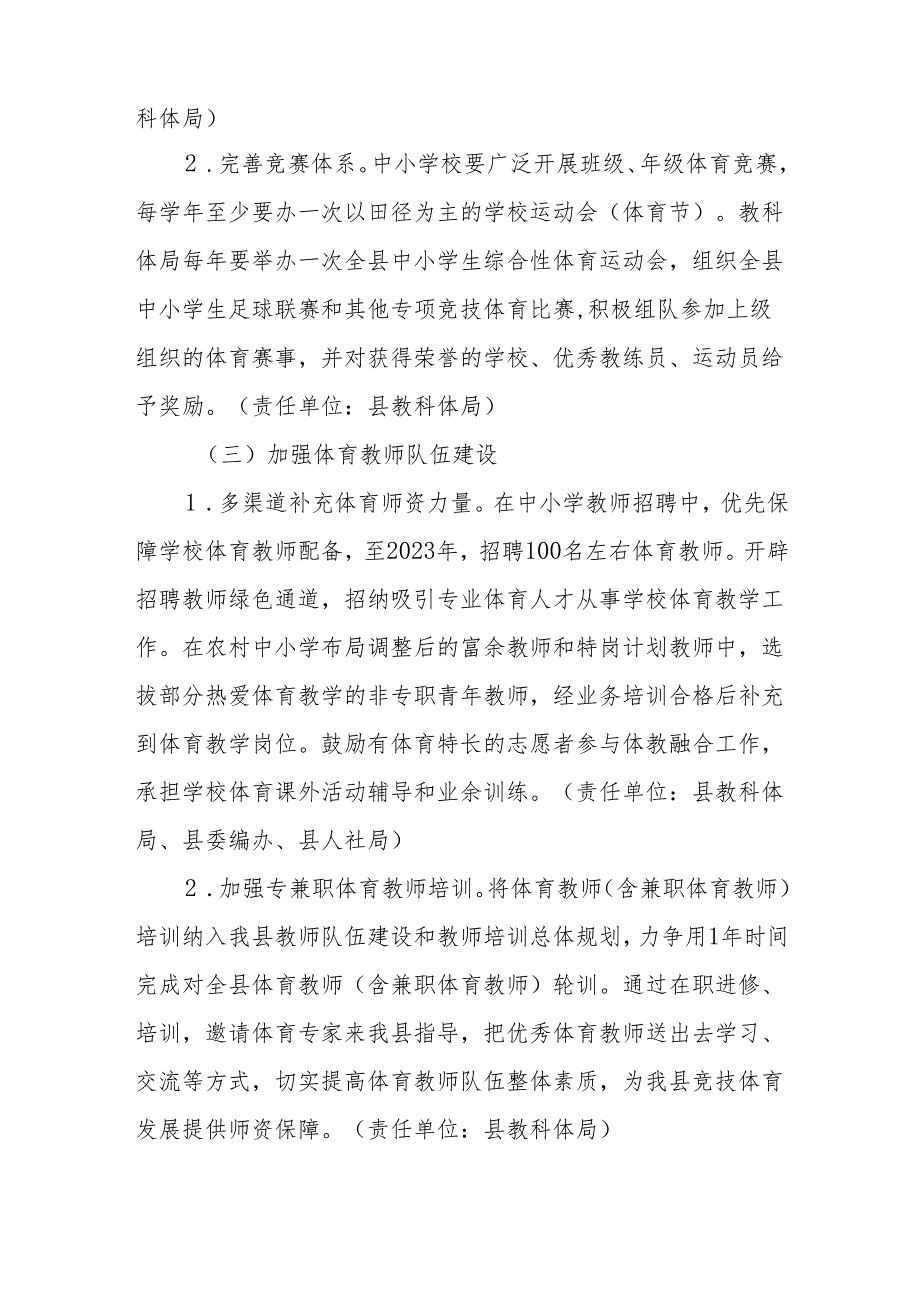 科体局）
2.完善竞赛体系。中小学校要广泛开展班级、年级体育竞赛，
每学年至少要办一次以田径为主的学校运动会（体育节）。教科
体局每年要举办一次全县中小学生综合性体育运动会，组织全县
中小学生足球联赛和其他专项竞技体育比赛,积极组队参加上级
组织的体育赛事，并对获得荣誉的学校、优秀教练员、运动员给
予奖励。（责任单位：县教科体局）
（三）加强体育教师队伍建设
1.多渠道补充体育师资力量。在中小学教师招聘中，优先保
障学校体育教师配备，至2023年，招聘100名左右体育教师。开辟
招聘教师绿色通道，招纳吸引专业体育人才从事学校体育教学工
作。在农村中小学布局调整后的富余教师和特岗计划教师中，选
拔部分热爱体育教学的非专职青年教师，经业务培训合格后补充
到体育教学岗位。鼓励有体育特长的志愿者参与体教融合工作，
承担学校体育课外活动辅导和业余训练。（责任单位：县教科体
局、县委编办、县人社局）
2.加强专兼职体育教师培训。将体育教师（含兼职体育教师）
培训纳入我县教师队伍建设和教师培训总体规划，力争用1年时间
完成对全县体育教师（含兼职体育教师）轮训。通过在职进修、
培训，邀请体育专家来我县指导，把优秀体育教师送出去学习、
交流等方式，切实提高体育教师队伍整体素质，为我县竞技体育
发展提供师资保障。（责任单位：县教科体局）